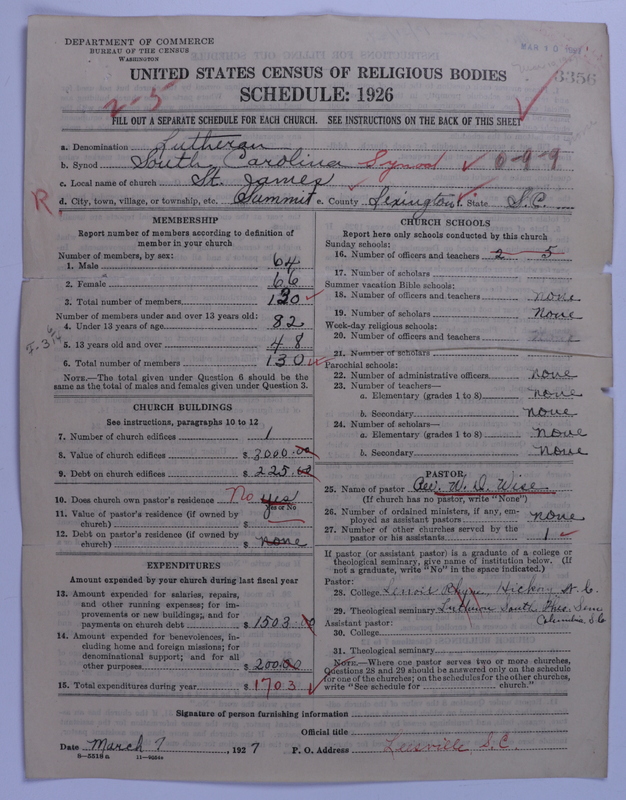 DEPARTMENT OF COMMERCE
BUREAU OF THE CENSUS
WASHINGTON
3356
UNITED STATES CENSUS OF RELIGIOUS BODIES
SCHEDULE: 1926
2-5
FILL OUT A SEPARATE SCHEDULE FOR EACH CHURCH. SEE INSTRUCTIONS ON THE BACK OF THIS SHEET
a. Denomination Lutheran
b. Synod South Carolina Synod 0-9-9
c. Local name of church St. James
d. City, town, village, or township, etc. Summit e. County Lexington State S.C.
R
MEMBERSHIP
Report number of members according to definition of
member in your church
Number of members, by sex:
1. Male 64
2. Female 66
3. Total number of members 130
Number of members under and over 13 years old:
4. Under 13 years of age 82
5. 13 years old and over 48
6. Total number of members 130
NOTE.—The total given under Question 6 should be the
same as the total of males and females given under Question 3.
CHURCH BUILDINGS
See instructions, paragraphs 10 to 12
7. Number of church edifices 1
8. Value of church edifices $ 3000.00
9. Debt on church edifices $ 225.00
10. Does church own pastor's residence No yes
Yes or No
11. Value of pastor's residence (if owned by
church) $
12. Debt on pastor's residence (if owned by
church) $ none
EXPENDITURES
Amount expended by your church during last fiscal year
13. Amount expended for salaries, repairs,
and other running expenses; for im-
provements or new buildings; and for
payments on church debt $ 1503.00
14. Amount expended for benevolences, in-
cluding home and foreign missions; for
denominational support; and for all
other purposes $ 200.00
15. Total expenditures during year $ 1703
CHURCH SCHOOLS
Report here only schools conducted by this church
Sunday schools:
16. Number of officers and teachers 2 5
17. Number of scholars
Summer vacation Bible schools:
18. Number of officers and teachers none
19. Number of scholars None
Week-day religious schools:
20. Number of officers and teachers
21. Number of scholars
Parochial schools:
22. Number of administrative officers none
23. Number of teachers—
a. Elementary (grades 1 to 8) none
b. Secondary none
24. Number of scholars—
a. Elementary (grades 1 to 8) none
b. Secondary none
PASTOR
25. Name of pastor Rev. W. D. Wise
(If church has no pastor, write "None")
26. Number of ordained ministers, if any, em-
ployed as assistant pastors none
27. Number of other churches served by the
pastor or his assistants 1
If pastor (or assistant pastor) is a graduate of a college or
theological seminary, give name of institution below. (If
not a graduate, write "No" in the space indicated.)
Pastor:
28. College Lenoir Rhyne, Hickory N.C.
29. Theological seminary Luthern South. Theo. Sem
Columbia, S.C.
Assistant pastor:
30. College
31. Theological seminary
NOTE.—Where one pastor serves two or more churches,
Questions 28 and 29 should be answered only on the schedule
for one of the churches; on the schedules for the other churches,
write "See schedule for church."
Signature of person furnishing information
Official title
Date March 7, 1927 P. O. Address Leesville S.C.
8—5518a 11—9034